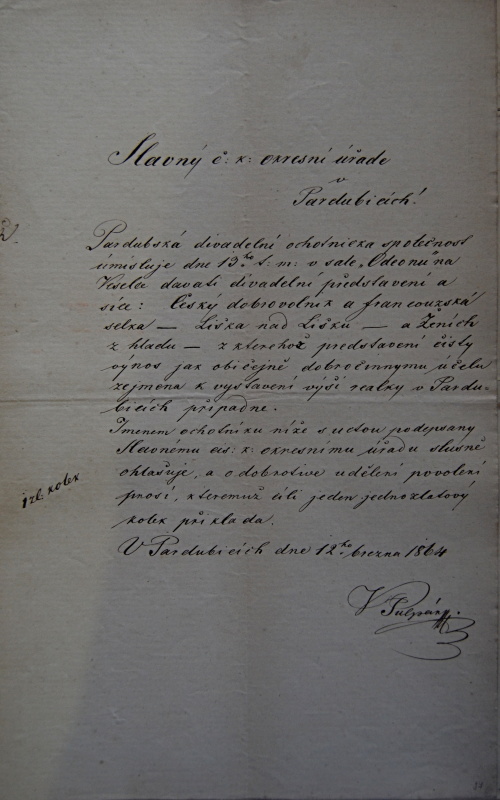 Slavný c: k: okresní úřade
v
Pardubicích!
Pardubská divadelní ochotnická společnost
úmisluje dne 13ho t: m: v sale „Odeonu" na
Veselce davati divadelní představení a
sice: Český dobrovolnik a francouzská
selka — Liška nad Lišku — a Ženich
z hladu — z kterehož predstavení čistý
výnos jak običejně dobročinnymu učelu
zejmena k vystavení výší realky v Pardu-
bicích připadne.
Jmenem ochotníku níže s uctou podepsany
Slavnému cis: k: okresnimu úřadu slušně
ohlašuje, a o dobrotive udělení povolení
prosí, kteremuž cíli jeden jednozlatovy
kolek přiklada.
V Pardubicích dne 12ho března 1864
1 zl. kolek